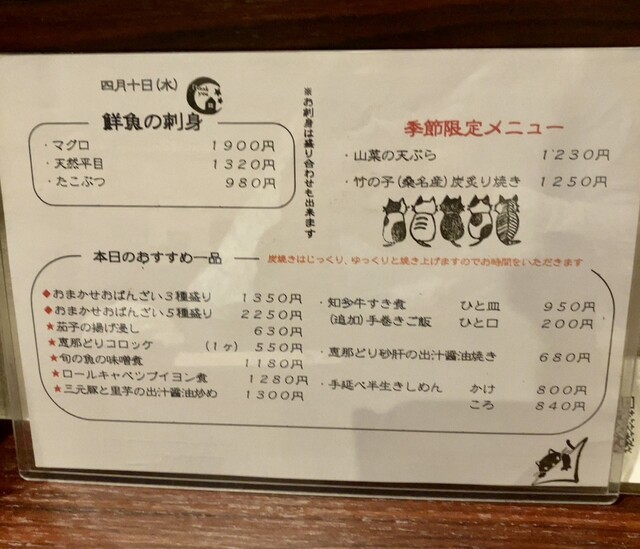 四月十日(木)
鮮魚の刺身
・マグロ 1900円
・天然平目 1320円
・たこぶつ 980円
※お刺身は盛り合わせも出来ます
季節限定メニュー
・山菜の天ぷら 1230円
・竹の子(桑名産)炭炙り焼き 1250円
本日のおすすめ一品
炭焼きはじっくり、ゆっくりと焼き上げますのでお時間をいただきます
◆おまかせおばんざい3種盛り 1350円
◆おまかせおばんざい5種盛り 2250円
★茄子の揚げ浸し 630円
★恵那どりコロッケ (1ヶ) 550円
★旬の魚の味噌煮 1180円
★ロールキャベツブイヨン煮 1280円
★三元豚と里芋の出汁醤油炒め 1300円
・知多牛すき煮 ひと皿 950円
(追加)手巻きご飯 ひと口 200円
・恵那どり砂肝の出汁醤油焼き 680円
・手延べ半生きしめん かけ 800円
ころ 840円